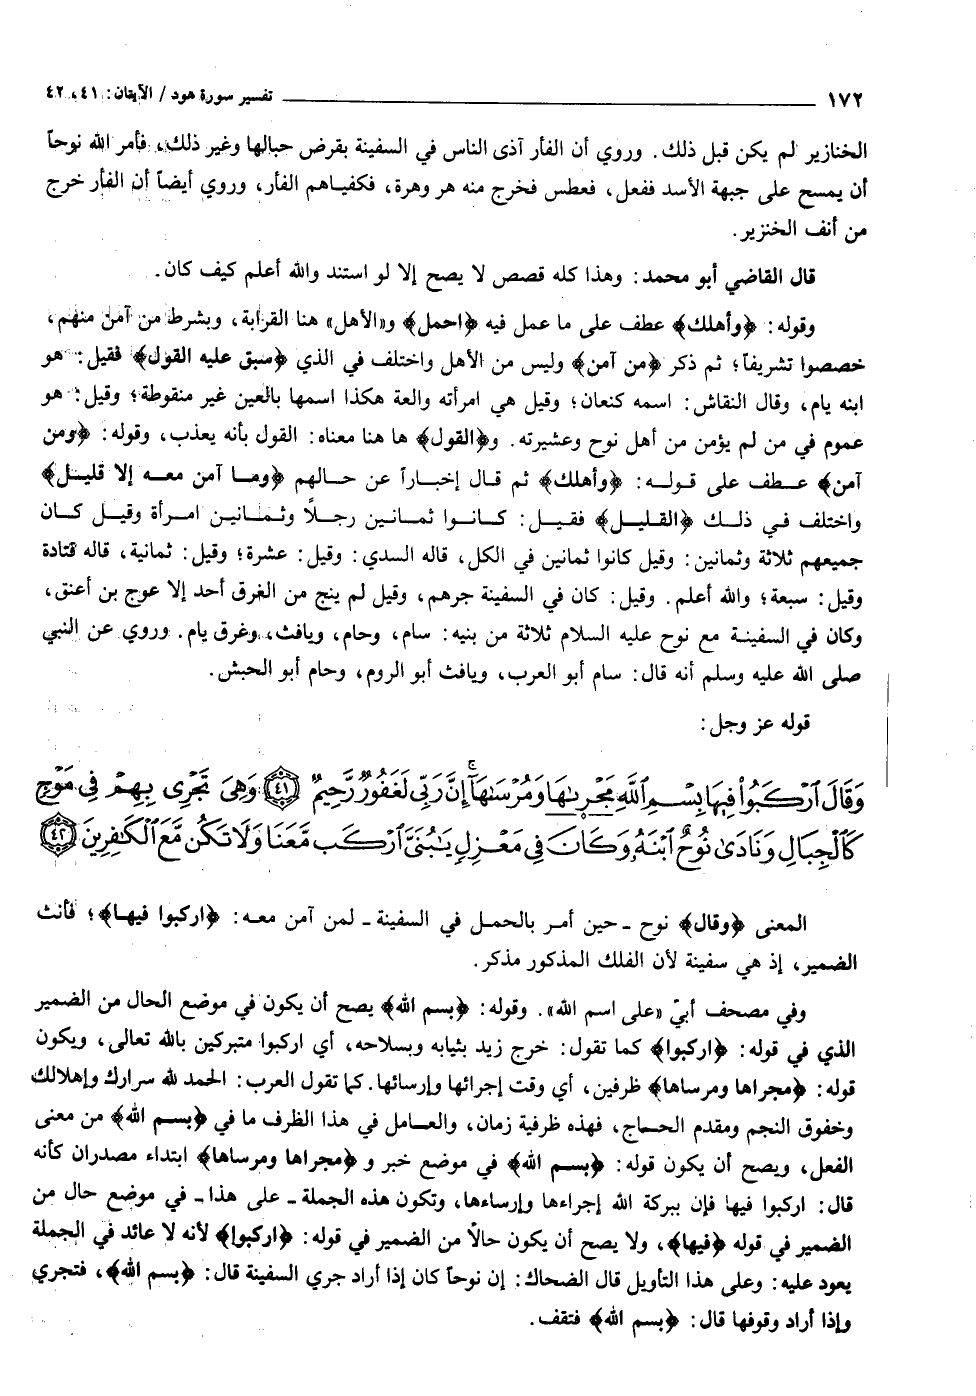 ١٧٢ ــــــــــــ تفسير سورة هود / الآيتان: ٤١، ٤٢
الخنازير لم يكن قبل ذلك. وروي أن الفأر آذى الناس في السفينة بقرض حبالها وغير ذلك، فأمر الله نوحاً
أن يمسح على جبهة الأسد ففعل، فعطس فخرج منه هر وهرة، فكفياهم الفأر، وروي أيضاً أن الفأر خرج
من أنف الخنزير.
قال القاضي أبو محمد: وهذا كله قصص لا يصح إلا لو استند والله أعلم كيف كان.
وقوله: ﴿وأهلك﴾ عطف على ما عمل فيه ﴿احمل﴾ و«الأهل» هنا القرابة، وبشرط من آمن منهم،
خصصوا تشريفاً؛ ثم ذكر ﴿من آمن﴾ وليس من الأهل واختلف في الذي ﴿سبق عليه القول﴾ فقيل: هو
ابنه يام، وقال النقاش: اسمه كنعان؛ وقيل هي امرأته والعة هكذا اسمها بالعين غير منقوطة؛ وقيل: هو
عموم في من لم يؤمن من أهل نوح وعشيرته. و﴿القول﴾ ها هنا معناه: القول بأنه يعذب، وقوله: ﴿ومن
آمن﴾ عطف على قوله: ﴿وأهلك﴾ ثم قال إخباراً عن حالهم ﴿وما آمن معه إلا قليل﴾
واختلف في ذلك ﴿القليل﴾ فقيل: كانوا ثمانين رجلاً وثمانين امرأة وقيل كان
جميعهم ثلاثة وثمانين: وقيل كانوا ثمانين في الكل، قاله السدي: وقيل: عشرة؛ وقيل: ثمانية، قاله قتادة
وقيل: سبعة؛ والله أعلم. وقيل: كان في السفينة جرهم، وقيل لم ينج من الغرق أحد إلا عوج بن أعنق،
وكان في السفينة مع نوح عليه السلام ثلاثة من بنيه: سام، وحام، ويافث، وغرق يام. وروي عن النبي
صلى الله عليه وسلم أنه قال: سام أبو العرب، ويافث أبو الروم، وحام أبو الحبش.
قوله عز وجل:
وَقَالَ ٱرْكَبُوا۟ فِيهَا بِسْمِ ٱللَّهِ مَجْر۪ىٰهَا وَمُرْسَىٰهَآ ۚ إِنَّ رَبِّى لَغَفُورٌ رَّحِيمٌ ﴿٤١﴾ وَهِىَ تَجْرِى بِهِمْ فِى مَوْجٍ
كَٱلْجِبَالِ وَنَادَىٰ نُوحٌ ٱبْنَهُۥ وَكَانَ فِى مَعْزِلٍ يَٰبُنَىَّ ٱرْكَب مَّعَنَا وَلَا تَكُن مَّعَ ٱلْكَٰفِرِينَ ﴿٤٢﴾
المعنى ﴿وقال﴾ نوح ـ حين أمر بالحمل في السفينة ـ لمن آمن معه: ﴿اركبوا فيها﴾؛ فأنث
الضمير، إذ هي سفينة لأن الفلك المذكور مذكر.
وفي مصحف أبيّ «على اسم الله». وقوله: ﴿بسم الله﴾ يصح أن يكون في موضع الحال من الضمير
الذي في قوله: ﴿اركبوا﴾ كما تقول: خرج زيد بثيابه وبسلاحه، أي اركبوا متبركين بالله تعالى، ويكون
قوله: ﴿مجراها ومرساها﴾ ظرفين، أي وقت إجرائها وإرسائها. كما تقول العرب: الحمد لله سرارك وإهلالك
وخفوق النجم ومقدم الحاج، فهذه ظرفية زمان، والعامل في هذا الظرف ما في ﴿بسم الله﴾ من معنى
الفعل، ويصح أن يكون قوله: ﴿بسم الله﴾ في موضع خبر و ﴿مجراها ومرساها﴾ ابتداء مصدران كأنه
قال: اركبوا فيها فإن ببركة الله إجراءها وإرساءها، وتكون هذه الجملة ـ على هذا ـ في موضع حال من
الضمير في قوله ﴿فيها﴾، ولا يصح أن يكون حالاً من الضمير في قوله: ﴿اركبوا﴾ لأنه لا عائد في الجملة
يعود عليه: وعلى هذا التأويل قال الضحاك: إن نوحاً كان إذا أراد جري السفينة قال: ﴿بسم الله﴾، فتجري
وإذا أراد وقوفها قال: ﴿بسم الله﴾ فتقف.